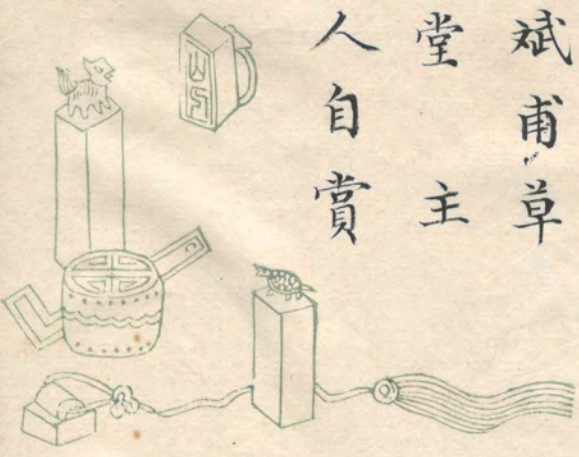 斌甫草
堂主
人自賞